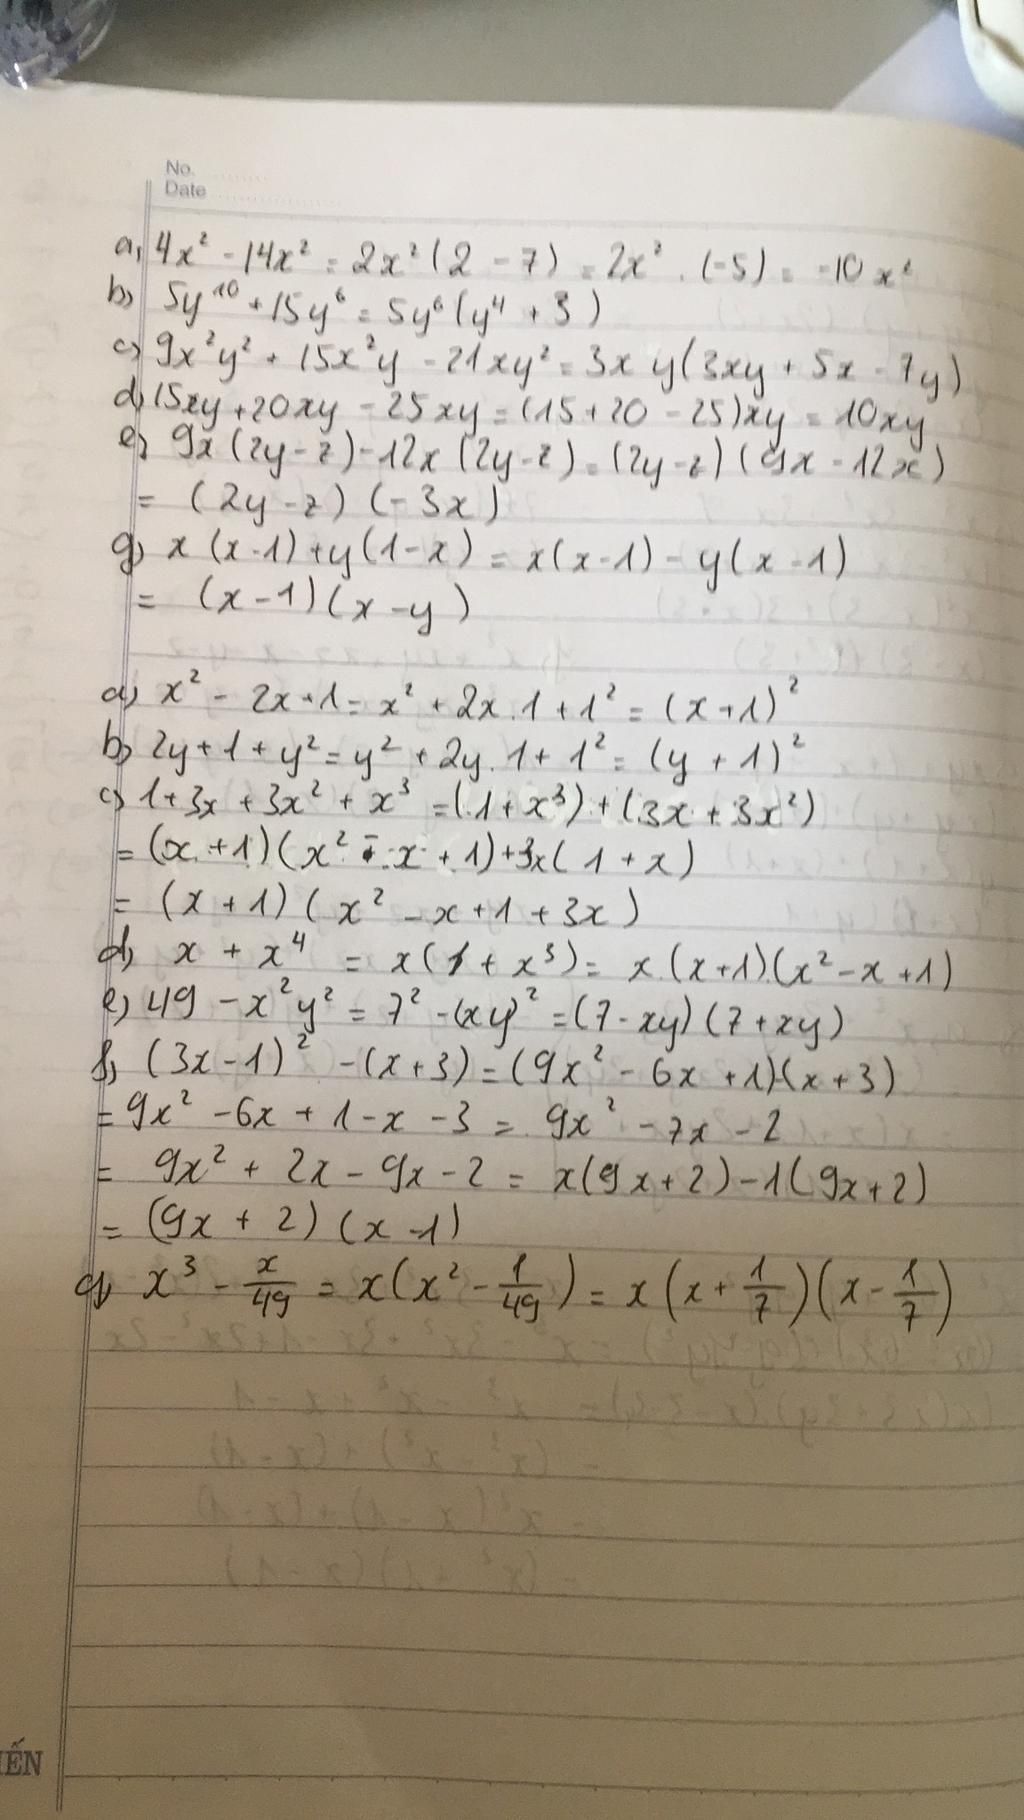 No.
Date
a, 4x² - 14x² = 2x² (2 - 7) = 2x² . (-5) = -10x²
b) 5y¹⁰ + 15y⁶ = 5y⁶ (y⁴ + 3)
c) 9x²y² + 15x²y - 21xy² = 3xy(3xy + 5x - 7y)
d) 15xy + 20xy - 25xy = (15 + 20 - 25)xy = 10xy
e) 9x (2y - z) - 12x (2y - z) = (2y - z) (9x - 12x)
= (2y - z) (-3x)
g) x (x - 1) + y (1 - x) = x(x - 1) - y(x - 1)
= (x - 1) (x - y)
a) x² - 2x + 1 = x² + 2x.1 + 1² = (x + 1)²
b) 2y + 1 + y² = y² + 2y.1 + 1² = (y + 1)²
c) 1 + 3x + 3x² + x³ = (1 + x³) + (3x + 3x²)
= (x + 1) (x² - x + 1) + 3x (1 + x)
= (x + 1) (x² - x + 1 + 3x)
d) x + x⁴ = x (1 + x³) = x.(x+1).(x² - x + 1)
e) 49 - x²y² = 7² - (xy)² = (7 - xy) (7 + xy)
f) (3x - 1)² - (x + 3) = (9x² - 6x + 1)-(x + 3)
= 9x² - 6x + 1 - x - 3 = 9x² - 7x - 2
= 9x² + 2x - 9x - 2 = x(9x + 2) - 1(9x + 2)
= (9x + 2) (x - 1)
g) x³ - x/49 = x(x² - 1/49) = x(x + 1/7)(x - 1/7)
ẾN